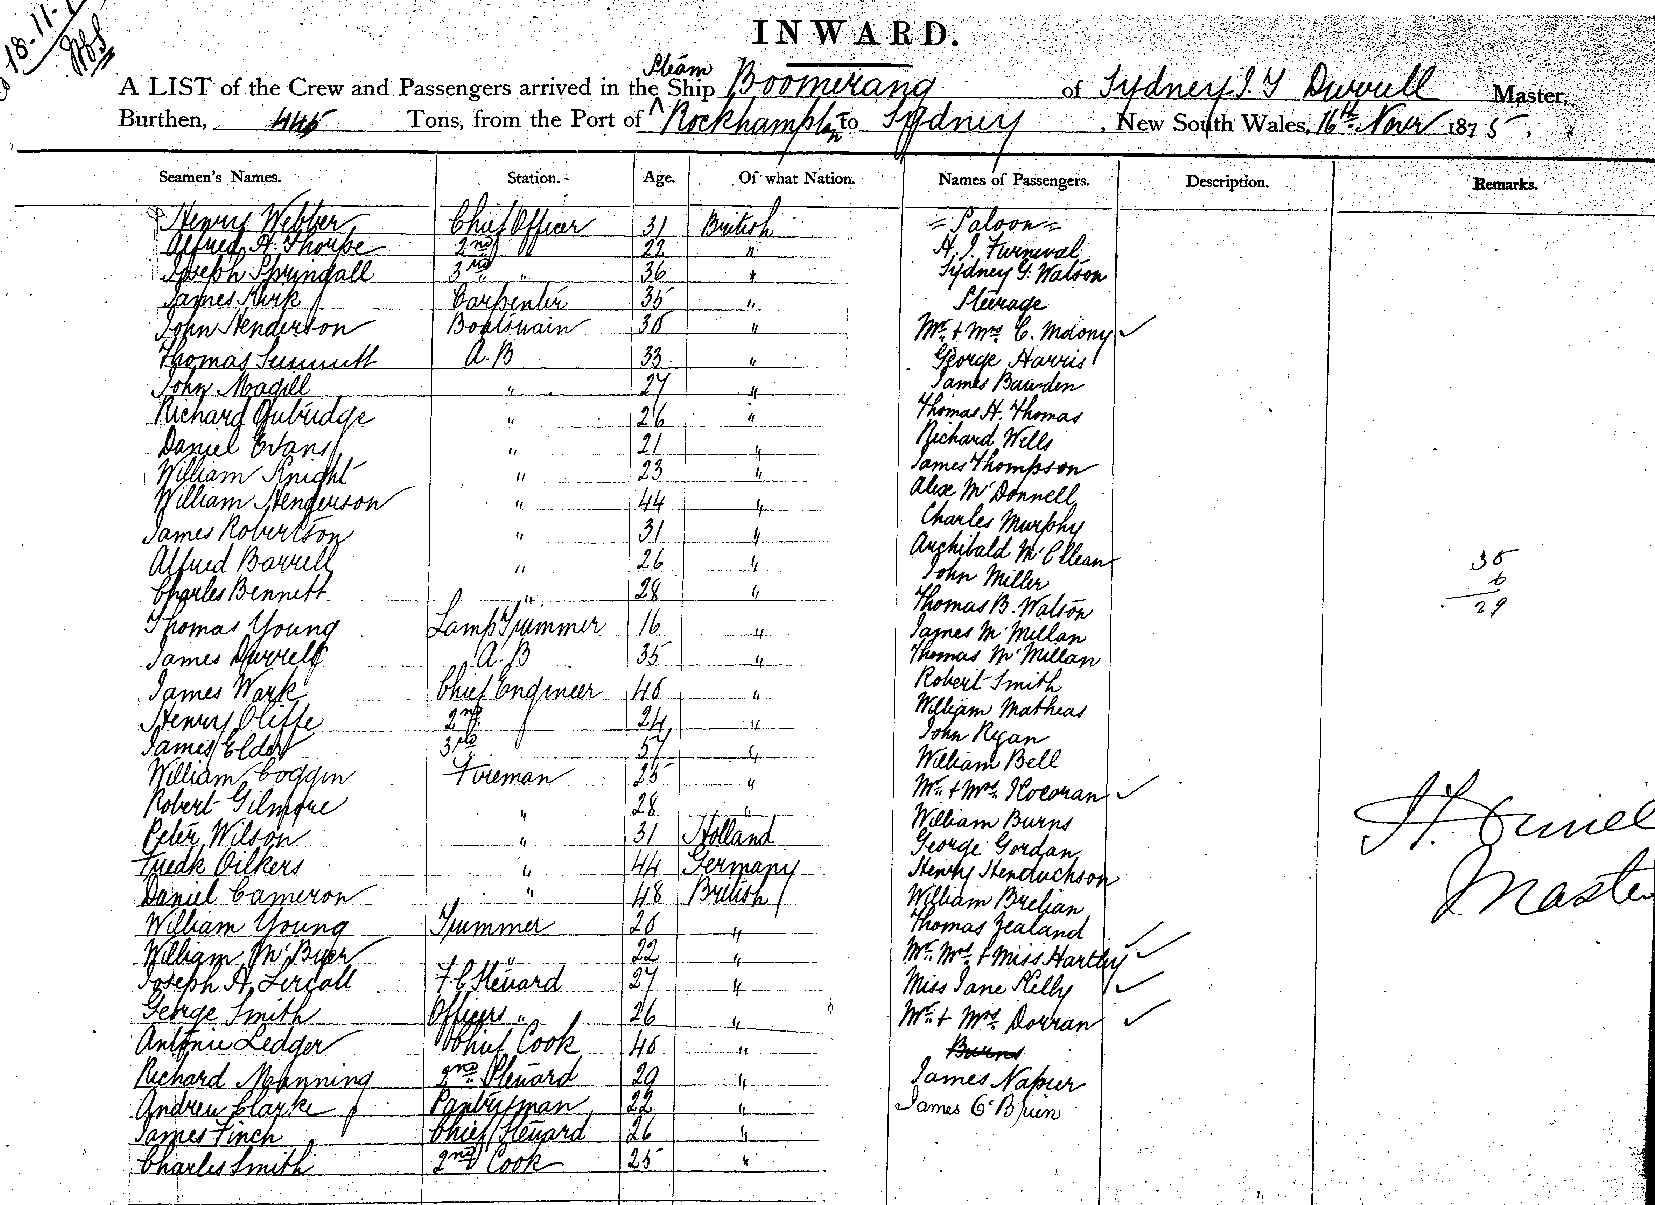 18-11-
INWARD.
A LIST of the Crew and Passengers arrived in the Steam Ship Boomerang of Sydney Master,
Burthen, 445 Tons, from the Port of Rockhampton to Sydney, New South Wales, 16th Novr 1875.
Seamen's Names. Station. Age. Of what Nation. Names of Passengers. Description. Remarks.
Henry Webber Chief Officer 31 British = Saloon =
Alfred H. Thorpe 2nd " 22 " H. J. Furnival
Joseph Springall 3rd " 36 " Sydney G. Watson
James Kirk Carpenter 35 " Steerage
John Henderson Boatswain 30 " Mr. & Mrs. C. Molony ✓
Thomas A.B 33 " George Harris
John Magill " 27 " James Bawden
Richard Outridge " 26 " Thomas H. Thomas
Daniel Evans " 21 " Richard Wells
William Knight " 23 " James Thompson
William Henderson " 44 " Alex McDonnell
James Robertson " 31 " Charles Murphy
Alfred Barrell " 26 " Archibald McClean
Charles Bennett " 28 " John Miller
Thomas Young Lamp Trimmer 16 " Thomas B. Watson
James Durrell A.B 35 " James McMillan
Thomas McMillan
James Wark Chief Engineer 40 " Robert Smith
Henry Oliffe 2nd " 24 " William Mathias
James Elder 3rd " 57 " John Ryan
William Coggin Fireman 25 " William Bell
Robert Gilmore " 28 " Mr. & Mrs. ✓
Peter Wilson " 31 Holland William Burns
Fredk Oilkers " 44 Germany George Gordan
Daniel Cameron " 48 British Henry Hendrichson
William Young Trimmer 20 " William
William McByer " 22 " Thomas Zealand
Mr. Mrs. & Miss Hartley ✓
Joseph H. F.C Steward 27 " Miss Jane Kelly ✓
George Smith Officers " 26 " Mr. & Mrs. Dorran ✓
Antonie Ledger Chief Cook 40 " Burns
Richard Manning 2nd Steward 29 " James Napier
Andrew Clarke Pantryman 22 " James O'Brien
James Finch Chief Steward 26 "
Charles Smith 2nd Cook 25 "
35
6
29
Master